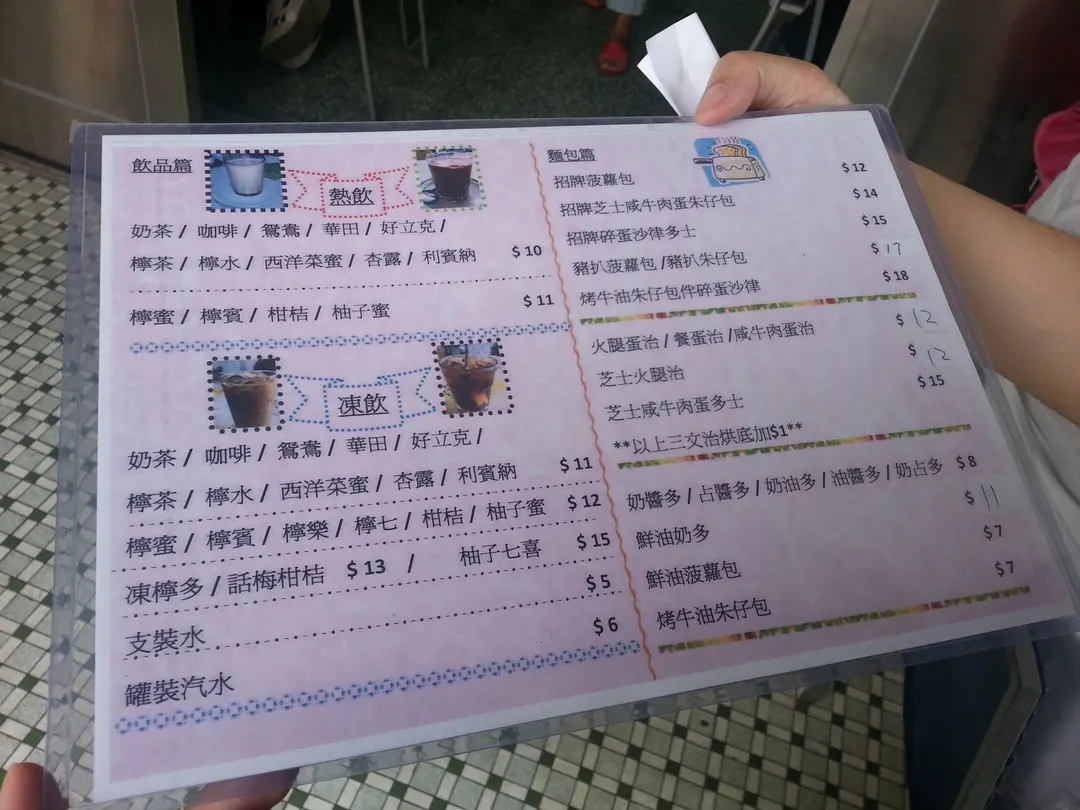 飲品篇
熱飲
奶茶 / 咖啡 / 鴛鴦 / 華田 / 好立克 /
檸茶 / 檸水 / 西洋菜蜜 / 杏露 / 利賓納 $10
檸蜜 / 檸賓 / 柑桔 / 柚子蜜 $11
凍飲
奶茶 / 咖啡 / 鴛鴦 / 華田 / 好立克 /
檸茶 / 檸水 / 西洋菜蜜 / 杏露 / 利賓納 $11
檸蜜 / 檸賓 / 檸樂 / 檸七 / 柑桔 / 柚子蜜 $12
凍檸多 / 話梅柑桔 $13 / 柚子七喜 $15
支裝水 $5
罐裝汽水 $6
麵包篇
招牌菠蘿包 $12
招牌芝士咸牛肉蛋朱仔包 $14
招牌碎蛋沙律多士 $15
豬扒菠蘿包 /豬扒朱仔包 $17
烤牛油朱仔包伴碎蛋沙律 $18
火腿蛋治 / 餐蛋治 /咸牛肉蛋治 $12
芝士火腿治 $12
芝士咸牛肉蛋多士 $15
**以上三文治烘底加$1**
奶醬多 / 占醬多 / 奶油多 / 油醬多 / 奶占多 $8
鮮油奶多 $11
鮮油菠蘿包 $7
烤牛油朱仔包 $7